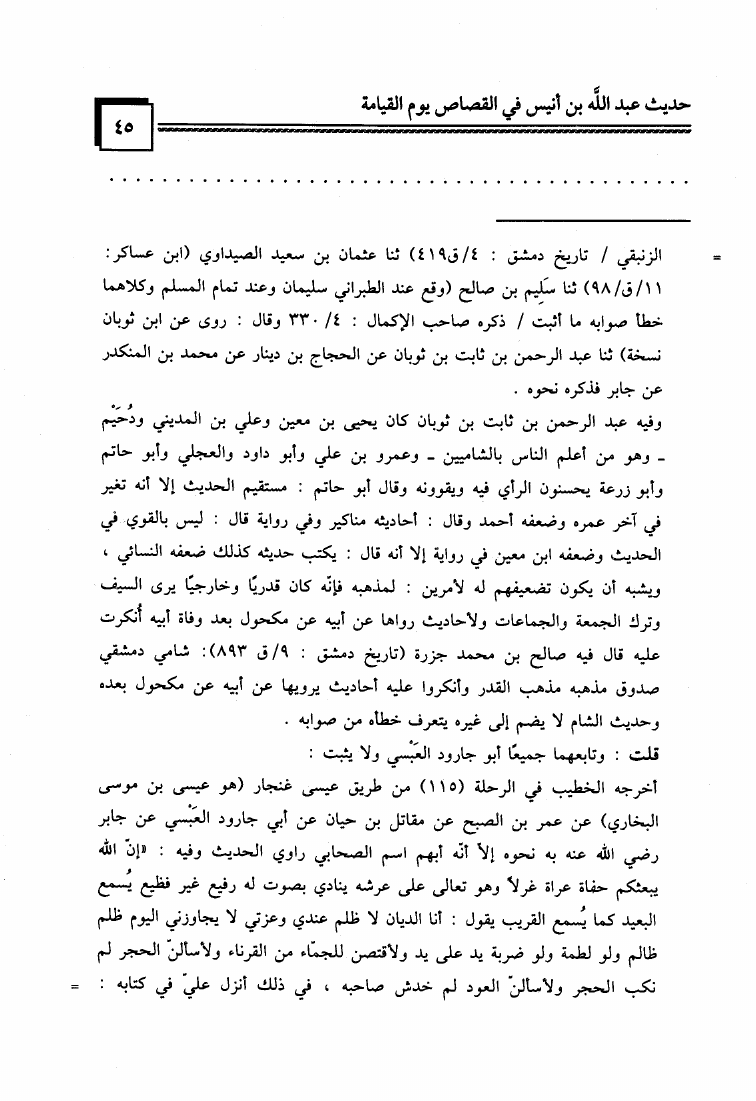 حديث عبد اللَّه بن أنيس في القصاص يوم القيامة
٤٥
. . . . . . . . . . . . . . . . . . . . . . . . . . . . . . . . . . . . . . . . . . .
= الزنبقي / تاريخ دمشق : ٤/ق٤١٩) ثنا عثمان بن سعيد الصيداوي (ابن عساكر:
١١/ق/٩٨) ثنا سَلِيم بن صالح (وقع عند الطبراني سليمان وعند تمام المسلم وكلاهما
خطأ صوابه ما أثبت / ذكره صاحب الإكمال : ٤/ ٣٣٠ وقال : روى عن ابن ثوبان
نسخة) ثنا عبد الرحمن بن ثابت بن ثوبان عن الحجاج بن دينار عن محمد بن المنكدر
عن جابر فذكره نحوه .
وفيه عبد الرحمن بن ثابت بن ثوبان كان يحيى بن معين وعلي بن المديني ودُحَيْم
ـ وهو من أعلم الناس بالشاميين ـ وعمرو بن علي وأبو داود والعجلي وأبو حاتم
وأبو زرعة يحسنون الرأي فيه ويقوونه وقال أبو حاتم : مستقيم الحديث إلا أنه تغير
في آخر عمره وضعفه أحمد وقال : أحاديثه مناكير وفي رواية قال : ليس بالقوي في
الحديث وضعفه ابن معين في رواية إلا أنه قال : يكتب حديثه كذلك ضعفه النسائي ،
ويشبه أن يكون تضعيفهم له لأمرين : لمذهبه فإنّه كان قدريًا وخارجيًا يرى السيف
وترك الجمعة والجماعات ولأحاديث رواها عن أبيه عن مكحول بعد وفاة أبيه أُنكرت
عليه قال فيه صالح بن محمد جزرة (تاريخ دمشق : ٩/ق ٨٩٣): شامي دمشقي
صدوق مذهبه مذهب القدر وأنكروا عليه أحاديث يرويها عن أبيه عن مكحول بعده
وحديث الشام لا يضم إلى غيره يتعرف خطأه من صوابه .
قلت : وتابعهما جميعًا أبو جارود العَبْسي ولا يثبت :
أخرجه الخطيب في الرحلة (١١٥) من طريق عيسى غنجار (هو عيسى بن موسى
البخاري) عن عمر بن الصبح عن مقاتل بن حيان عن أبي جارود العَبْسي عن جابر
رضي الله عنه به نحوه إلاّ أنّه أبهم اسم الصحابي راوي الحديث وفيه : «إنّ الله
يبعثكم حفاة عراة غرلاً وهو تعالى على عرشه ينادي بصوت له رفيع غير فظيع يُسمع
البعيد كما يُسمع القريب يقول : أنا الديان لا ظلم عندي وعزتي لا يجاوزني اليوم ظلم
ظالم ولو لطمة ولو ضربة يد على يد ولأقتصن للجمّاء من القرناء ولأسألنّ الحجر لم
نكب الحجر ولأسألنّ العود لم خدش صاحبه ، في ذلك أنزل عليّ في كتابه : =